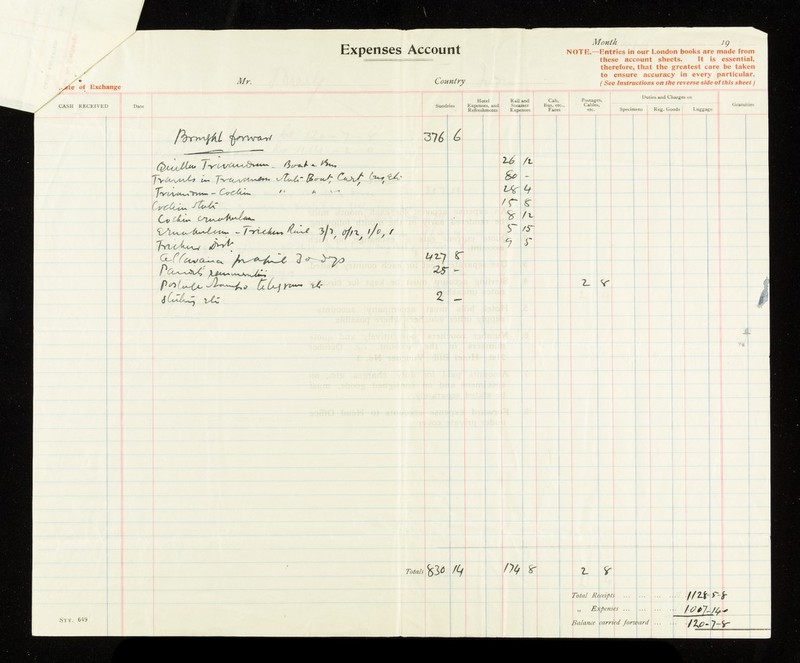 Expenses Account
Month 19
NOTE.—Entries in our London books are made from
these account sheets. It is essential,
therefore, that the greatest care be taken
to ensure accuracy in every particular.
(See Instructions on the reverse side of this sheet)
of Exchange
Mr.
Country
CASH RECEIVED
Date
Sundries
Hotel Expenses, and Refreshments
Rail and Steamer Expenses
Cab, Bus, etc., Fares
Postages, Cables, etc.
Duties and Charges on
Specimens
Reg. Goods
Luggage
Gratuities
Brought forward 376 6
Quillon Trivandrum - Boat & Bus 26 12
Travels in Travancore State Boat, Cart, etc 80 -
Trivandrum - Cochin " " " 28 4
Cochin State 15 8
Cochin Ernakulam 8 12
Ernakulam - Trichur Rail 3/7, 0/12, 1/0, 1 5 15
Trichur Dist. 9 5
Allowance for April 30 days 427 8
25 -
Postage stamps telegrams etc 2 8
etc 2 -
Totals 830 14 174 8 2 8
Total Receipts 1128-5-8
„ Expenses 1007-14-
Balance carried forward 120-7-8
STY. 649